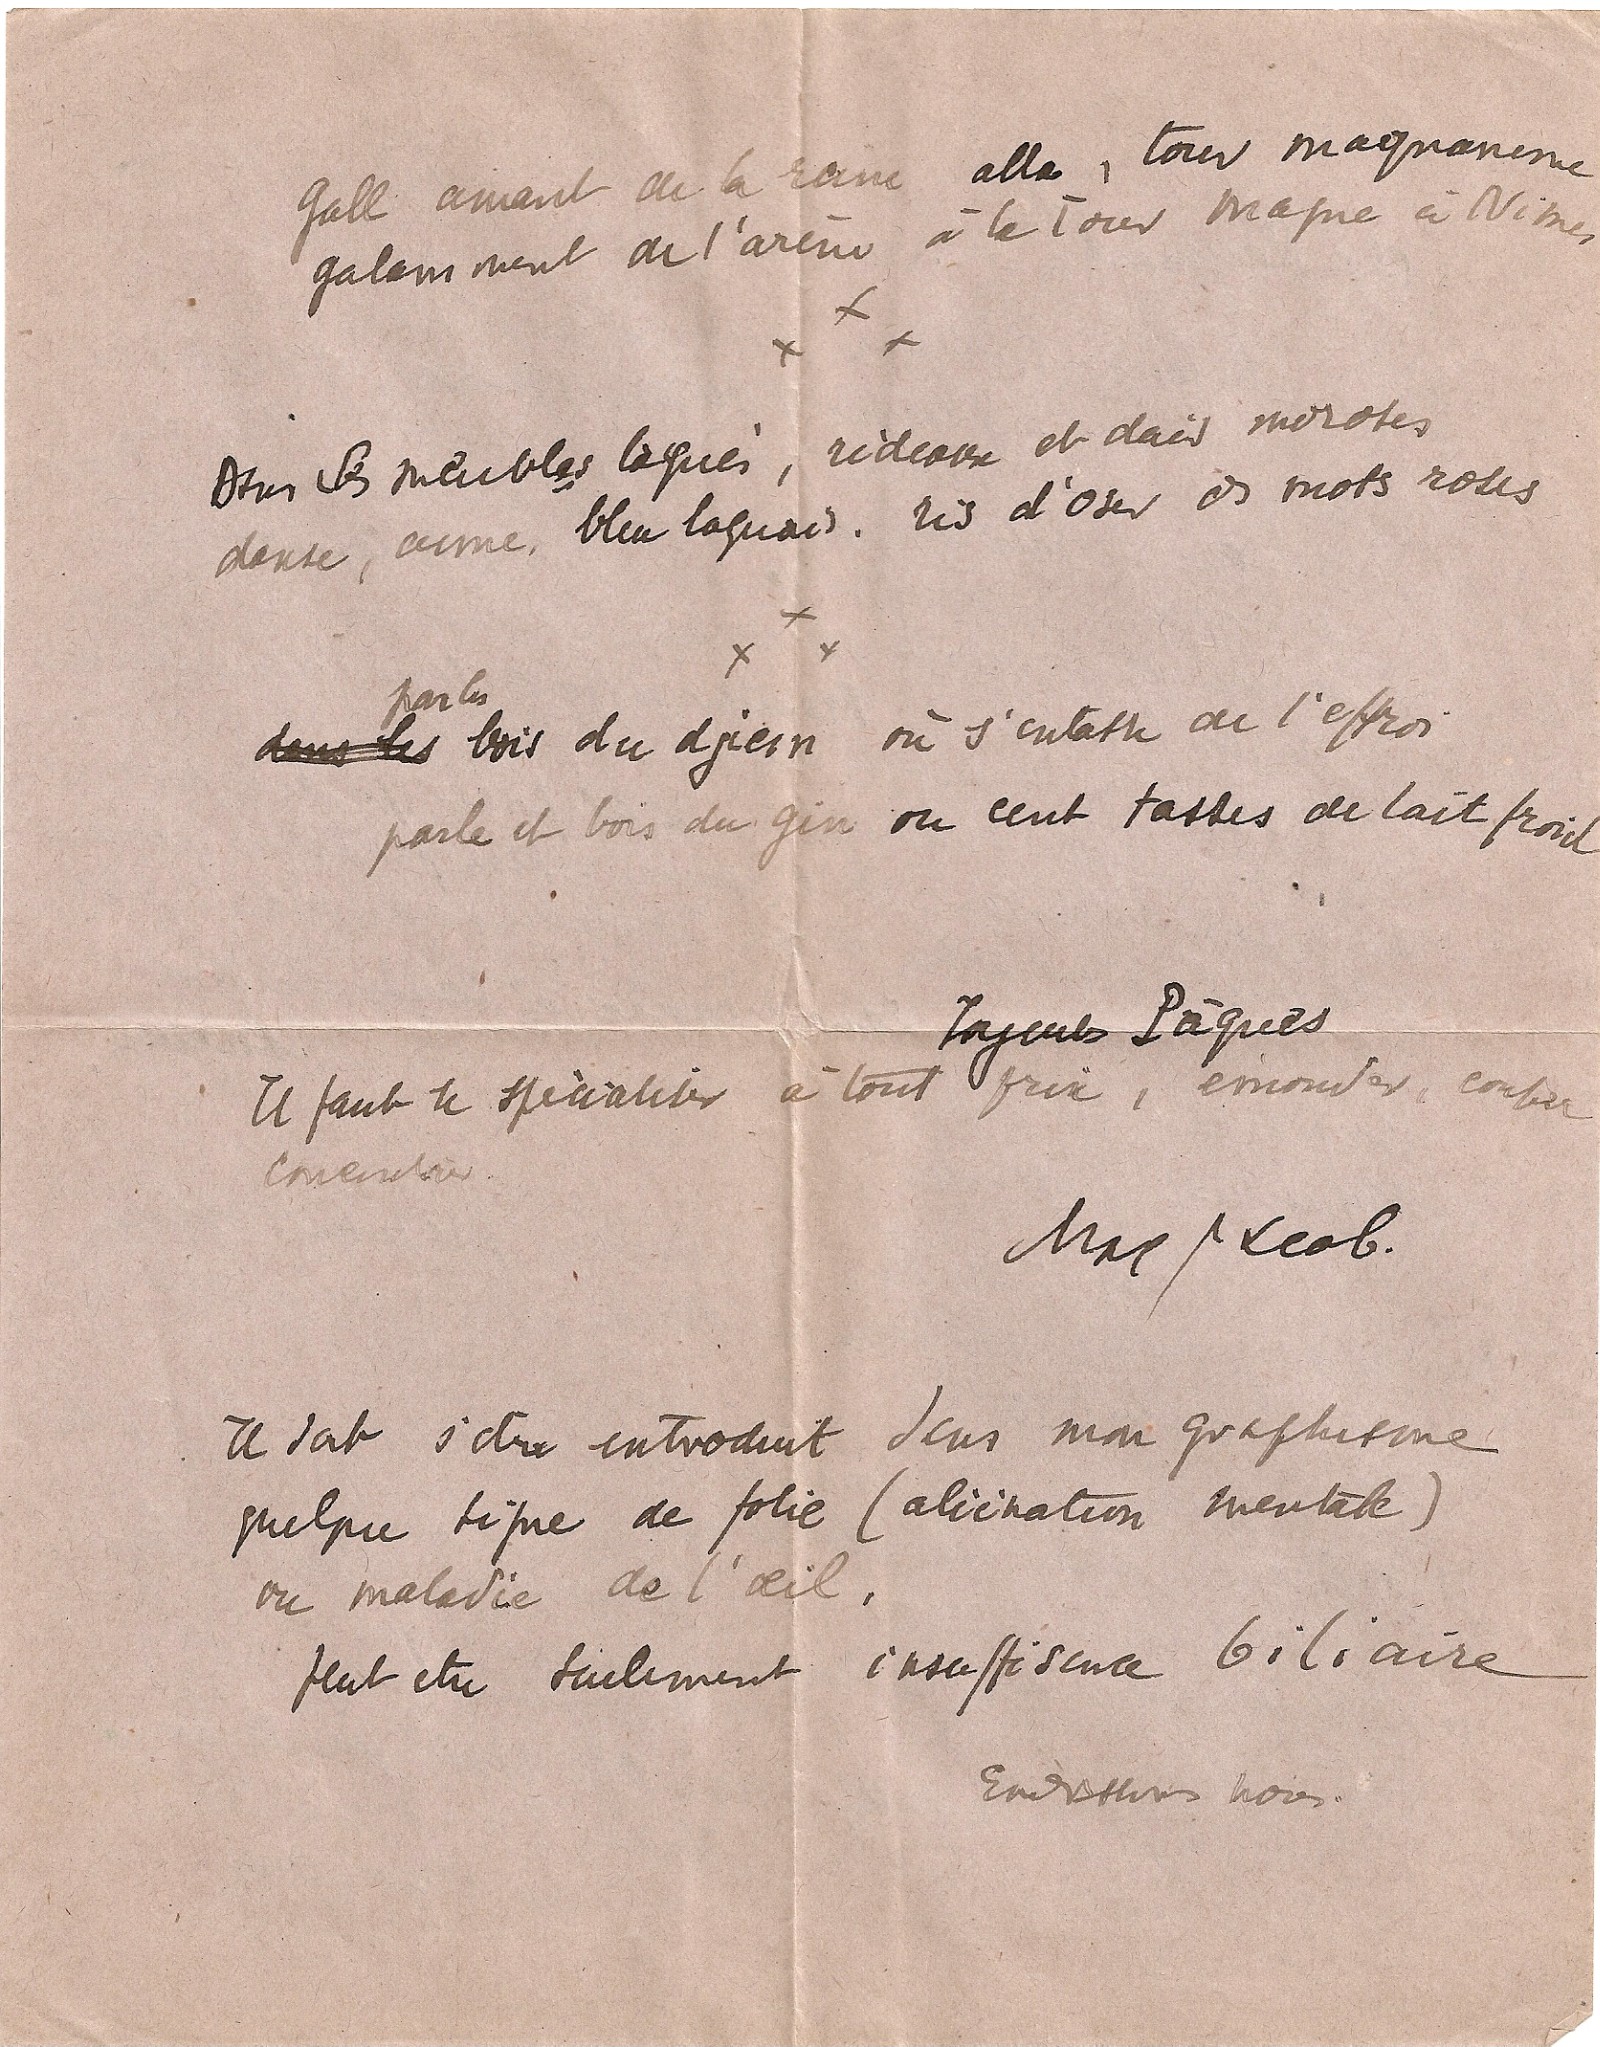 Gall amant de la reine alla, tour magnanime
galamment de l'arène à la Tour magne à Nîmes
x
x x
Dans ces meubles laqués, rideaux et dais moroses
danse, aime, bleu laquais. ris d'oser des mots roses
x
x x
par les
dans les bois du djinn où s'entasse de l'effroi
parle et bois du gin ou cent tasses de lait froid
Joyeuses Pâques
Il faut se spécialiser à tout prix, émonder, couper
concentrer.
Max Jacob.
Il doit s'être introduit dans mon graphisme
quelque signe de folie (aliénation mentale)
ou maladie de l'œil,
peut etre seulement insuffisance biliaire
Embrassons nous.